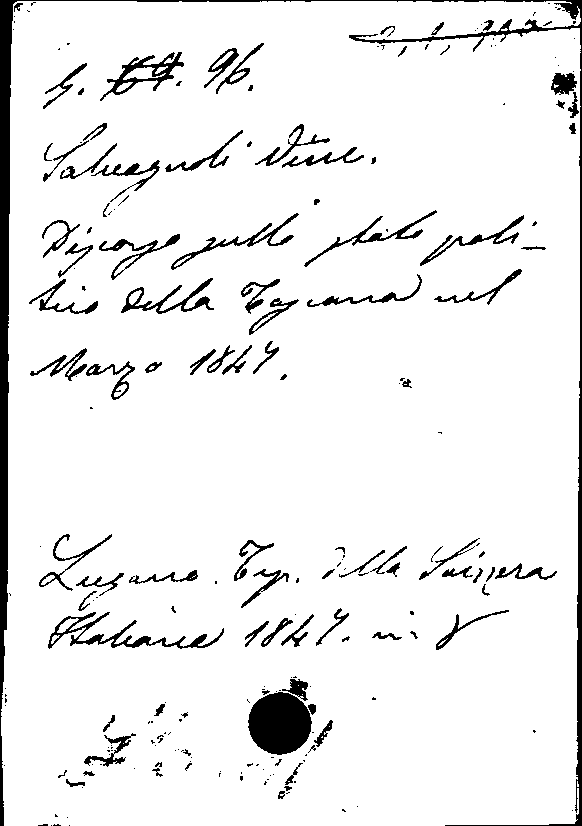 G. 69. 96.
Salvagnoli Vinc.
Discorso sullo stato poli-
tico della Toscana nel
Marzo 1847.
Lugano. Typ. della Svizzera
Italiana 1847. in 8